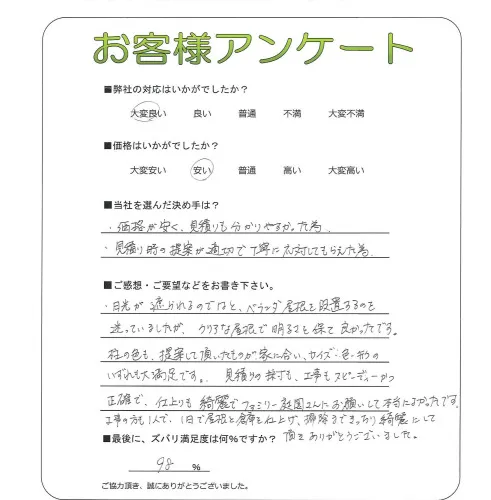 お客様アンケート
■弊社の対応はいかがでしたか?
大変良い 良い 普通 不満 大変不満
■価格はいかがでしたか?
大変安い 安い 普通 高い 大変高い
■当社を選んだ決め手は?
・価格が安く、見積りも分かりやすかった為
・見積り時の提案が適切で丁寧に応対してもらえた為
■ご感想・ご要望などをお書き下さい。
・日光が遮られるのではと、ベランダ屋根を設置するのを
迷っていましたが、クリアな屋根で明るさを保て良かったです。
柱の色も、提案して頂いたものが家に合い、サイズ・色・形の
いずれも大満足です。見積りの採寸も、工事もスピーディーかつ
正確で、仕上りも綺麗でファミリー庭園さんにお願いして本当によかったです。
工事の方も1人で、1日で屋根と倉庫を仕上げ、掃除まできっちり綺麗にして
頂きありがとうございました。
■最後に、ズバリ満足度は何%ですか?
98 %
ご協力頂き、誠にありがとうございました。